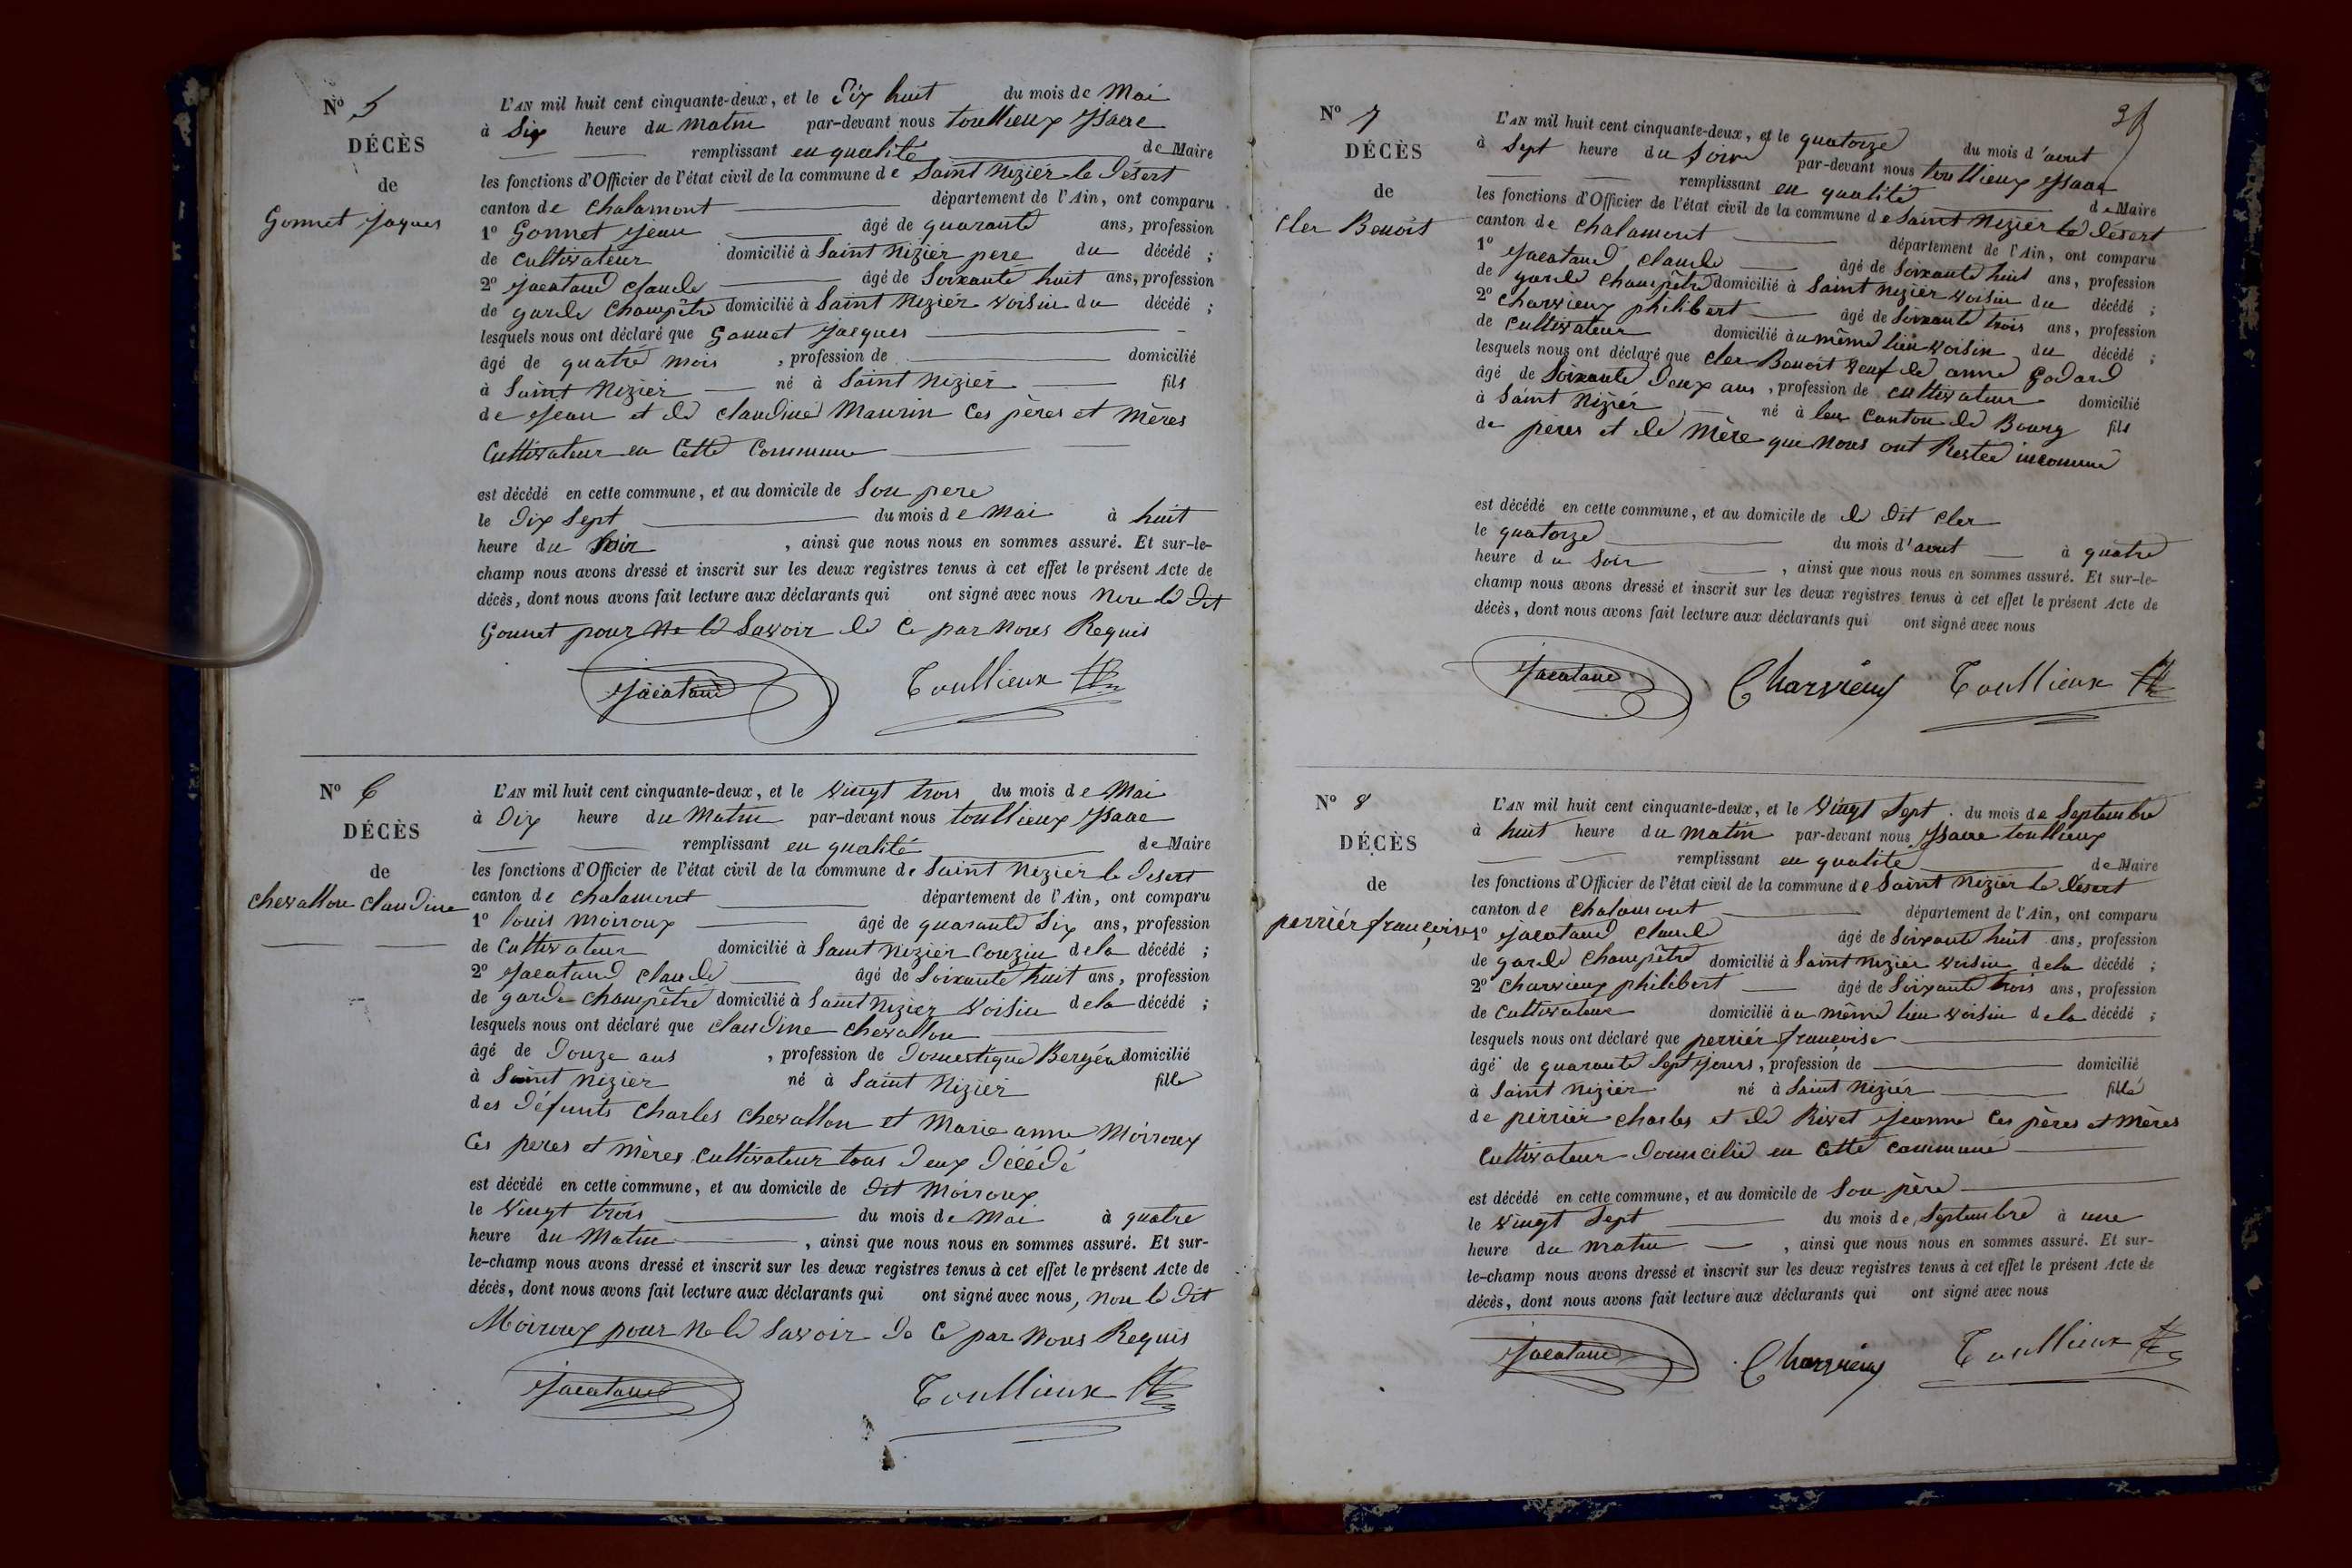 Nº 5
DÉCÈS
de
Gonnet Jaques
L'AN mil huit cent cinquante-deux, et le Dix huit du mois de Mai
à Six heure du Matin par-devant nous toullieux Isaac
remplissant en qualité de Maire
les fonctions d'Officier de l'état civil de la commune de Saint Nizier le Désert
canton de Chalamont département de l'Ain, ont comparu
1º Gonnet Jean âgé de quarante ans, profession
de Cultivateur domicilié à Saint Nizier pere du décédé ;
2º Jacataud claude âgé de Soixante huit ans, profession
de garde Champêtre domicilié à Saint Nizier Voisin du décédé ;
lesquels nous ont déclaré que Gonnet Jacques
âgé de quatre mois , profession de domicilié
à Saint Nizier né à Saint Nizier fils
de Jean et de claudine Maurin Ces pères et Mères
Cultivateur en Cette Commune
est décédé en cette commune, et au domicile de Son pere
le Dix Sept du mois de Mai à huit
heure du Soir , ainsi que nous nous en sommes assuré. Et sur-le-
champ nous avons dressé et inscrit sur les deux registres tenus à cet effet le présent Acte de
décès, dont nous avons fait lecture aux déclarants qui ont signé avec nous Non le Dit
Gonnet pour Ne le Savoir de Ce par Nous Requis
Jacataud Toullieux
Nº 6
DÉCÈS
de
chevallon claudine
L'AN mil huit cent cinquante-deux, et le Vingt trois du mois de Mai
à Dix heure du Matin par-devant nous toullieux Isaac
remplissant en qualité de Maire
les fonctions d'Officier de l'état civil de la commune de Saint Nizier le Désert
canton de Chalamont département de l'Ain, ont comparu
1º louis Moiroux âgé de quarante Six ans, profession
de Cultivateur domicilié à Saint Nizier Couzin de la décédé ;
2º Jacataud claude âgé de Soixante huit ans, profession
de garde champêtre domicilié à Saint Nizier Voisin de la décédé ;
lesquels nous ont déclaré que claudine chevallon
âgé de Douze ans , profession de Domestique Bergér domicilié
à Saint Nizier né à Saint Nizier fille
des Défunts Charles Chevallon et Marie anne Moiroux
Ces peres et mères Cultivateur tous Deux Décédé
est décédé en cette commune, et au domicile de Dit Moiroux
le Vingt trois du mois de Mai à quatre
heure du Matin , ainsi que nous nous en sommes assuré. Et sur-
le-champ nous avons dressé et inscrit sur les deux registres tenus à cet effet le présent Acte de
décès, dont nous avons fait lecture aux déclarants qui ont signé avec nous, Non le Dit
Moiroux pour Ne le Savoir De Ce par Nous Requis
Jacataud Toullieux
Nº 7
DÉCÈS
de
cler Benoit
L'AN mil huit cent cinquante-deux, et le quatorze du mois d'aout
à Sept heure du Soir par-devant nous toullieux Isaac
remplissant en qualité de Maire
les fonctions d'Officier de l'état civil de la commune de Saint Nizier le Désert
canton de Chalamont département de l'Ain, ont comparu
1º Jacataud claude âgé de Soixante huit ans, profession
de garde Champêtre domicilié à Saint Nizier Voisin du décédé ;
2º Charvieux philibert âgé de Soixante trois ans, profession
de Cultivateur domicilié à u même lieu Voisin du décédé ;
lesquels nous ont déclaré que cler Benoit Veuf de anne Godard
âgé de Soixante Deux ans , profession de Cultivateur domicilié
à Saint Nizier né à leu Canton de Bourg fils
de pères et de Mère que Nous ont Restée inconnue
est décédé en cette commune, et au domicile de le Dit cler
le quatorze du mois d'aout à quatre
heure du Soir , ainsi que nous nous en sommes assuré. Et sur-le-
champ nous avons dressé et inscrit sur les deux registres tenus à cet effet le présent Acte de
décès, dont nous avons fait lecture aux déclarants qui ont signé avec nous
Jacataud Charvieux Toullieux
Nº 8
DÉCÈS
de
perriér françoise
L'AN mil huit cent cinquante-deux, et le Vingt Sept du mois de Septembre
à huit heure du matin par-devant nous Isaac toullieux
remplissant en qualité de Maire
les fonctions d'Officier de l'état civil de la commune de Saint Nizier le Désert
canton de Chalamont département de l'Ain, ont comparu
1º Jacataud Claude âgé de Soixante huit ans, profession
de garde Champêtre domicilié à Saint Nizier Voisin de la décédé ;
2º Charvieux philibert âgé de Soixante trois ans, profession
de Cultivateur domicilié à u même lieu Voisin de la décédé ;
lesquels nous ont déclaré que perriér françoise
âgé de quarante Sept Jours , profession de domicilié
à Saint Nizier né à Saint Nizier fille
de perriér Charles et de Rivet Jeanne Ces pères et Mères
Cultivateur Domicilié en Cette Commune
est décédé en cette commune, et au domicile de Son père
le Vingt Sept du mois de Septembre à une
heure du matin , ainsi que nous nous en sommes assuré. Et sur-
le-champ nous avons dressé et inscrit sur les deux registres tenus à cet effet le présent Acte de
décès, dont nous avons fait lecture aux déclarants qui ont signé avec nous
Jacataud Charvieux Toullieux